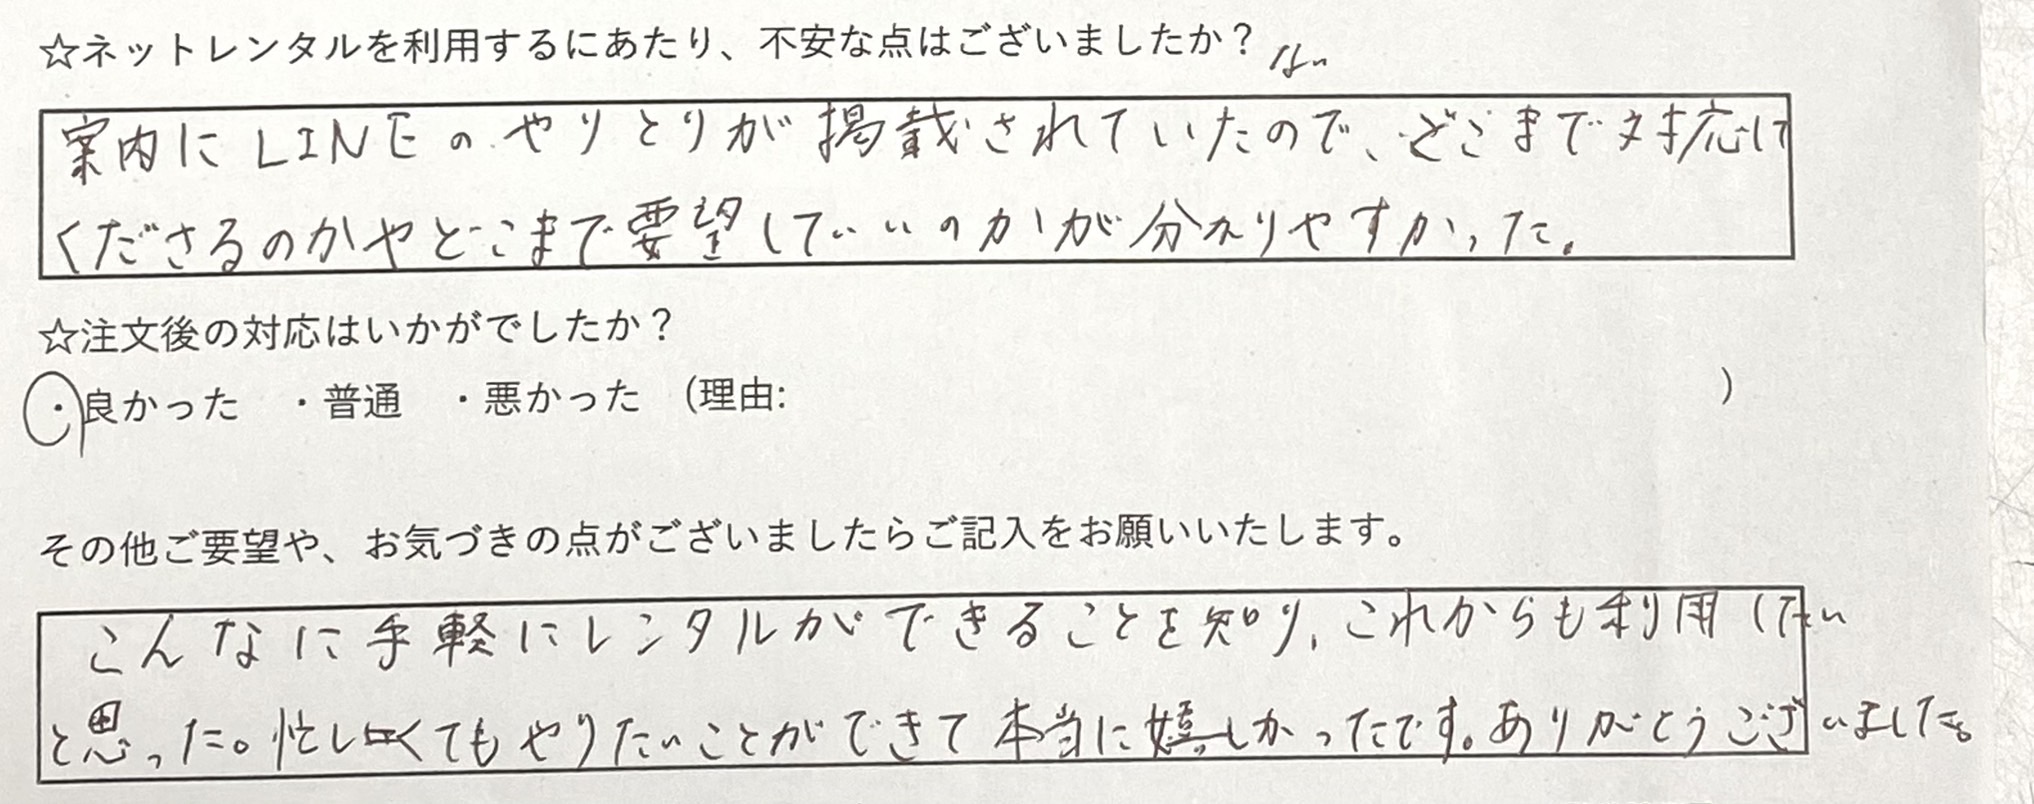 ☆ネットレンタルを利用するにあたり、不安な点はございましたか？ ない
案内にLINEのやりとりが掲載されていたので、どこまで対応して
くださるのかやどこまで要望していいのかが分かりやすかった。
☆注文後の対応はいかがでしたか？
・良かった ・普通 ・悪かった (理由: )
その他ご要望や、お気づきの点がございましたらご記入をお願いいたします。
こんなに手軽にレンタルができることを知り、これからも利用したい
と思った。忙しくてもやりたいことができて本当に嬉しかったです。ありがとうございました。